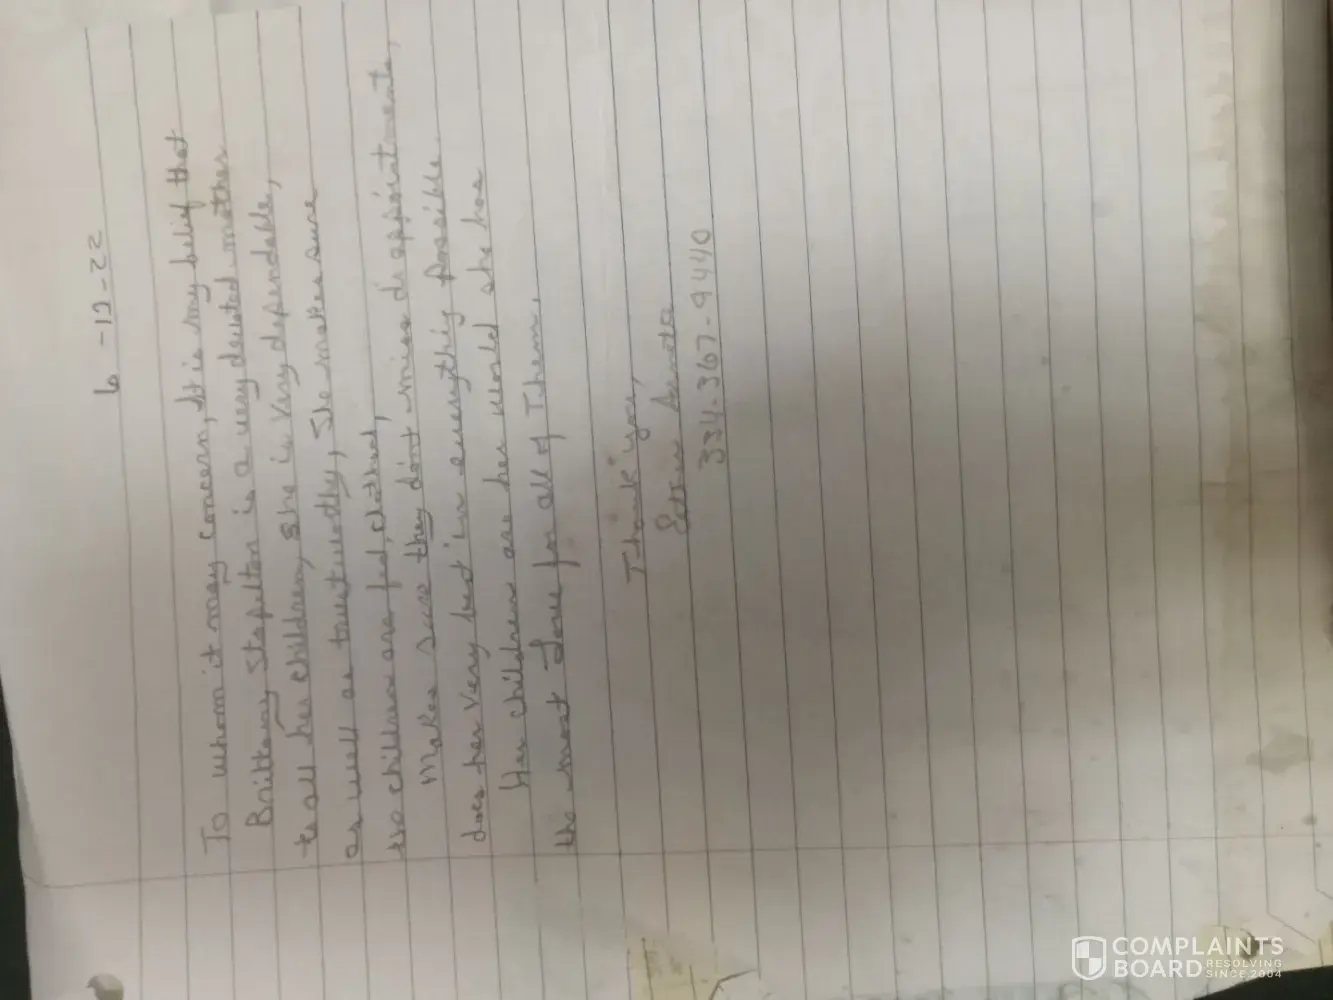 6-17-22
To whom it may concern, It is my belief that
Brittany Stapelton is a very devoted mother
to all her children, She is Very dependable,
as well as trustworthy, She makes sure
the children are fed, clothed,
Makes sure they don't miss dr appointments,
does her very best in everythig possible.
Her children are her world she has
the most Love for all of Them.
Thank you,
334-367-9440
COMPLAINTS
BOARD RESOLVING
SINCE 2004